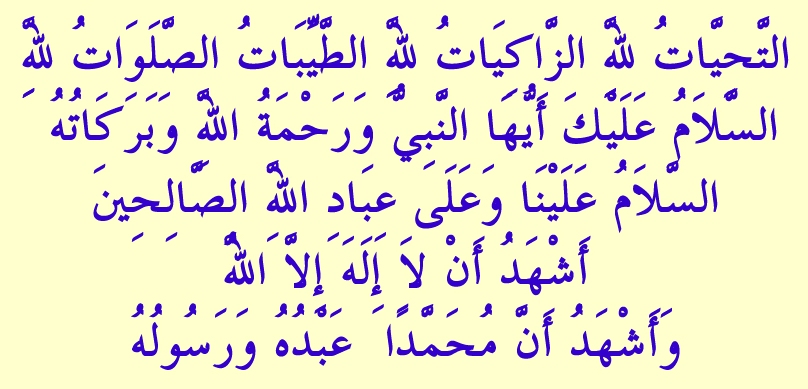 التَّحِيَّاتُ لِلَّهِ الزَّاكِيَاتُ لِلَّهِ الطَّيِّبَاتُ الصَّلَوَاتُ لِلَّهِ
السَّلاَمُ عَلَيْكَ أَيُّهَا النَّبِيُّ وَرَحْمَةُ اللَّهِ وَبَرَكَاتُهُ
السَّلاَمُ عَلَيْنَا وَعَلَى عِبَادِ اللَّهِ الصَّالِحِينَ
أَشْهَدُ أَنْ لاَ إِلَهَ إِلاَّ اللَّهُ
وَأَشْهَدُ أَنَّ مُحَمَّدًا عَبْدُهُ وَرَسُولُهُ